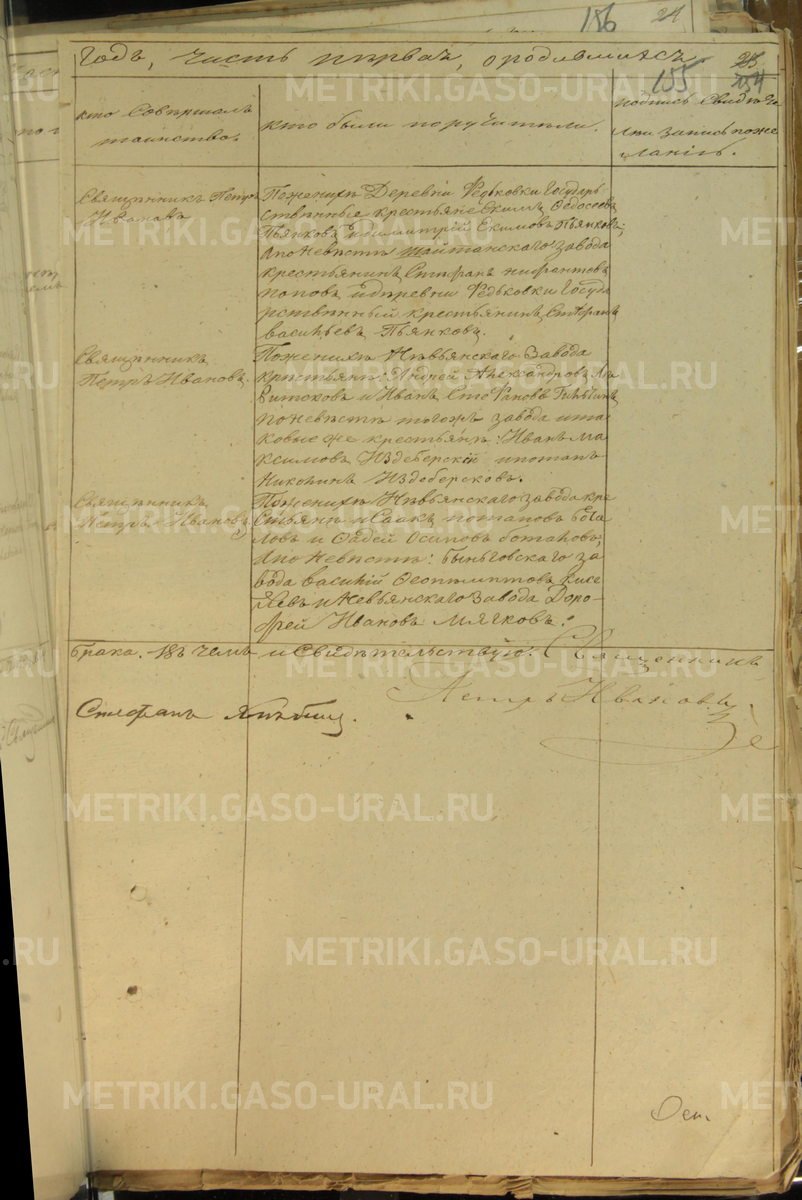 156 24
годъ, часть первая, о родившихся
25
155 154
кто совершалъ
таинство.
кто были поручители.
подпись свиде
или запись по же
ланію.
Священникъ Петръ
Ивановъ
По женихѣ Деревни Федьковки Государ
ственные крестьяне Екимъ Федосѣевъ
Пьянковъ и Димитрей Екимовъ Пьянковъ;
а по невѣсте Шайтанскаго завода
крестьянинъ Стефанъ Нифантовъ
Поповъ и деревни Федьковки Госуда
рственный крестьянинъ Стефанъ
Васильевъ Пьянковъ.
Священникъ
Петръ Ивановъ.
По женихѣ Невьянскаго Завода
крестьяне: Андрей Александровъ
и Иванъ Стефановъ
по невѣсте тогожъ завода и та
ковые же крестьяне: Иванъ Ма
ксимовъ Издеберскій и Потапъ
Никитинъ Издоберсковъ.
Священникъ
Петръ Ивановъ
По женихѣ Невьянскаго завода кре
стьяне Исаакъ Потаповъ
и Фадей Осиповъ Потаповъ,
а по невѣсте: Быньговскаго за
вода Василій Феопемптовъ Кисе
левъ и Невьянскаго завода Доро-
фей Ивановъ Мягковъ.
брака. Въ чемъ и свидѣтельствую: Священникъ
Петръ Ивановъ.
Стефанъ
METRIKI.GASO-URAL.RU